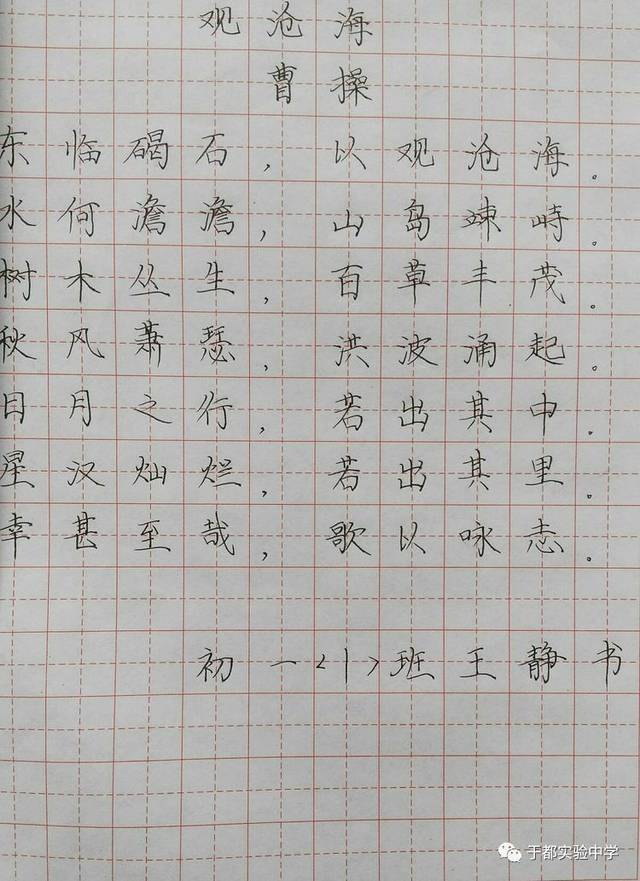 观沧海
曹操
东临碣石，以观沧海。
水何澹澹，山岛竦峙。
树木丛生，百草丰茂。
秋风萧瑟，洪波涌起。
日月之行，若出其中。
星汉灿烂，若出其里。
幸甚至哉，歌以咏志。
初一<1>班王静书
于都实验中学